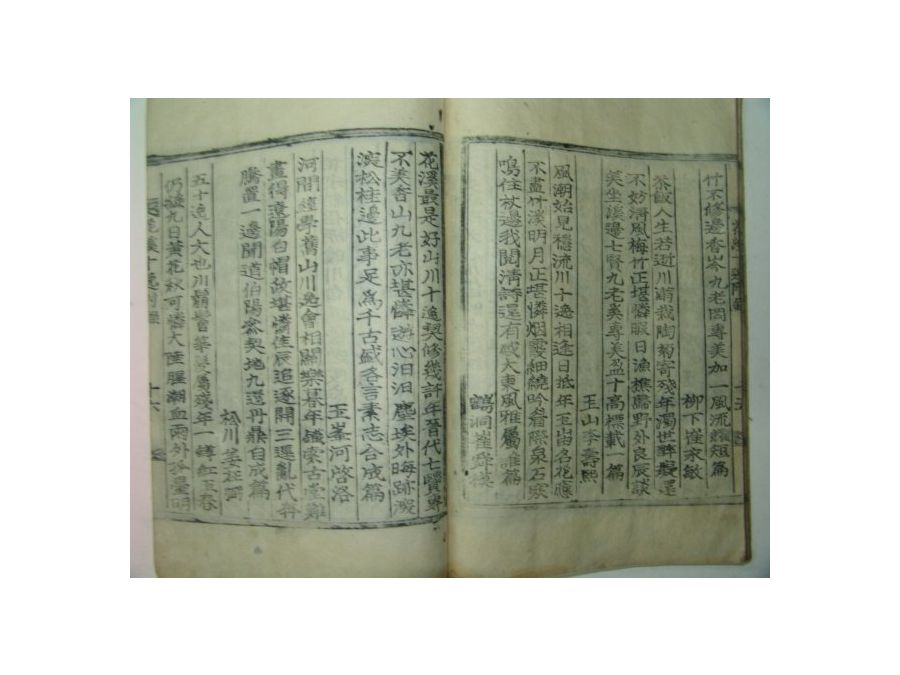 竹不修邊香岑九老圖專美加一風流短篇
柳下崔家敏
茶飯人生若逝川滿栽陶菊寄殘年濁世醉還
不妨清風梅竹正堪憐暇日漁樵野外良辰談
笑坐溪邊七賢九老奚專美盈十高標載一篇
玉山李壽熙
風潮始見穩流川十逸相逢日抵年玉岫名花應
不盡竹溪明月正堪憐烟霞細繞吟際泉石寒
鳴住杖邊我閱淸詩還有感大東風雅屬唯篇
鶴洞崔
花溪最是好山川十逸契修幾許年晉代七賢畀
不羡香山九老亦堪憐遊心汨汨塵埃外晦跡
淡松桂邊此事足爲千古盛各言素志合成篇
玉峯河啓洛
河間經學舊山川逸會相關樂暮年古堂難
畫得遼陽白帽故堪憐佳辰追逐開三逕亂代
騰置一邊聞道伯陽地九還丹鼎自成篇
松川姜
五十逸人文也川鬚殘年一紅春
九日黃花秋可憐大陸腥潮血雨外孤星明
花溪十逸
十六